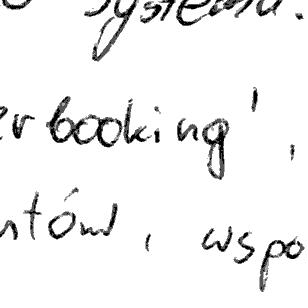 systemu.
er booking',
ntów, wspo